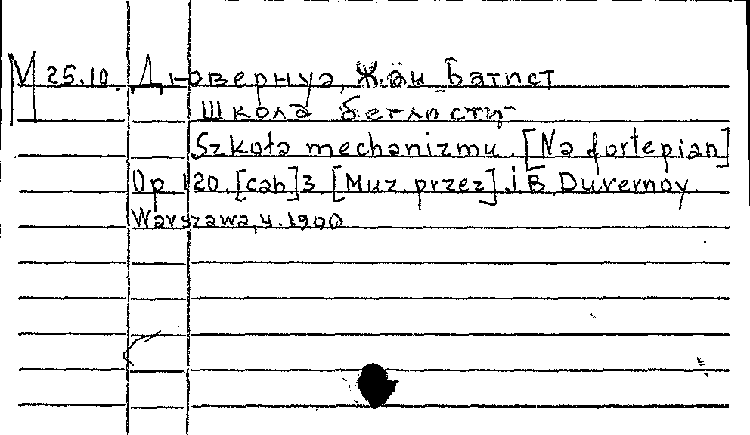 М 25.10. Дювернуа, Жан Батист
Школа беглости
Szkoła mechanizmu. [Na fortepian]
Op 120. [cah] 3 [Muz. przez] J. B. Duvernoy.
Warszawa, 4. 1900